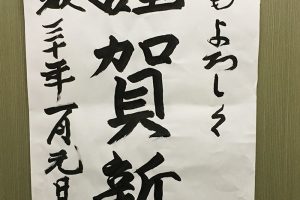 もよろしく
謹賀新
成三十年一月元日